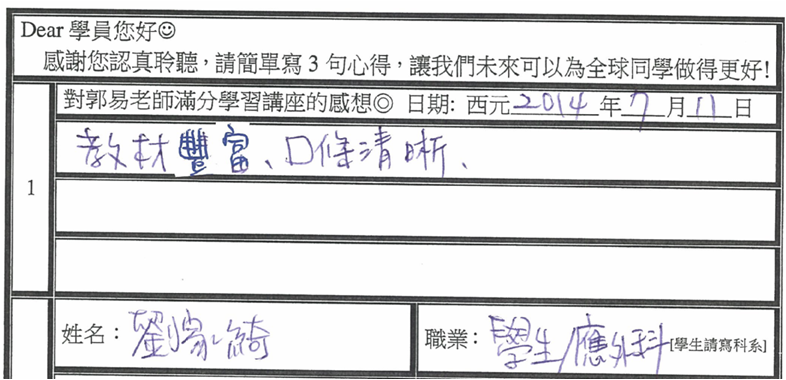 Dear 學員您好☺
感謝您認真聆聽，請簡單寫 3 句心得，讓我們未來可以為全球同學做得更好!
1
對郭易老師滿分學習講座的感想◎ 日期: 西元 2014 年 7 月 11 日
教材豐富、口條清晰、
姓名： 劉家綺 職業： 學生/應外科 [學生請寫科系]